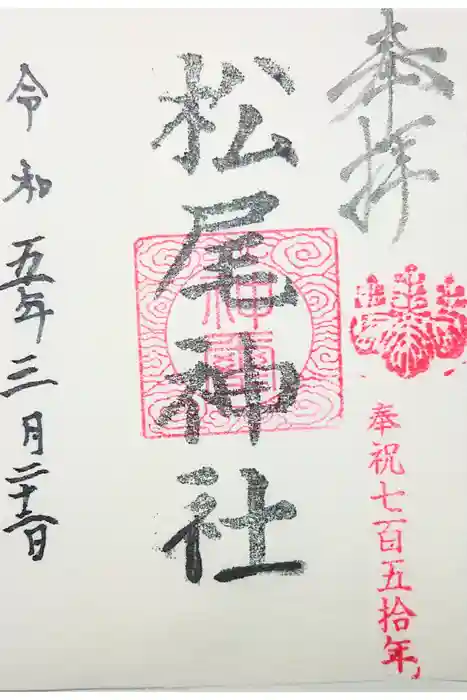 奉拝
奉祝七百五拾年
松尾神社
神璽
令和五年三月二十二日